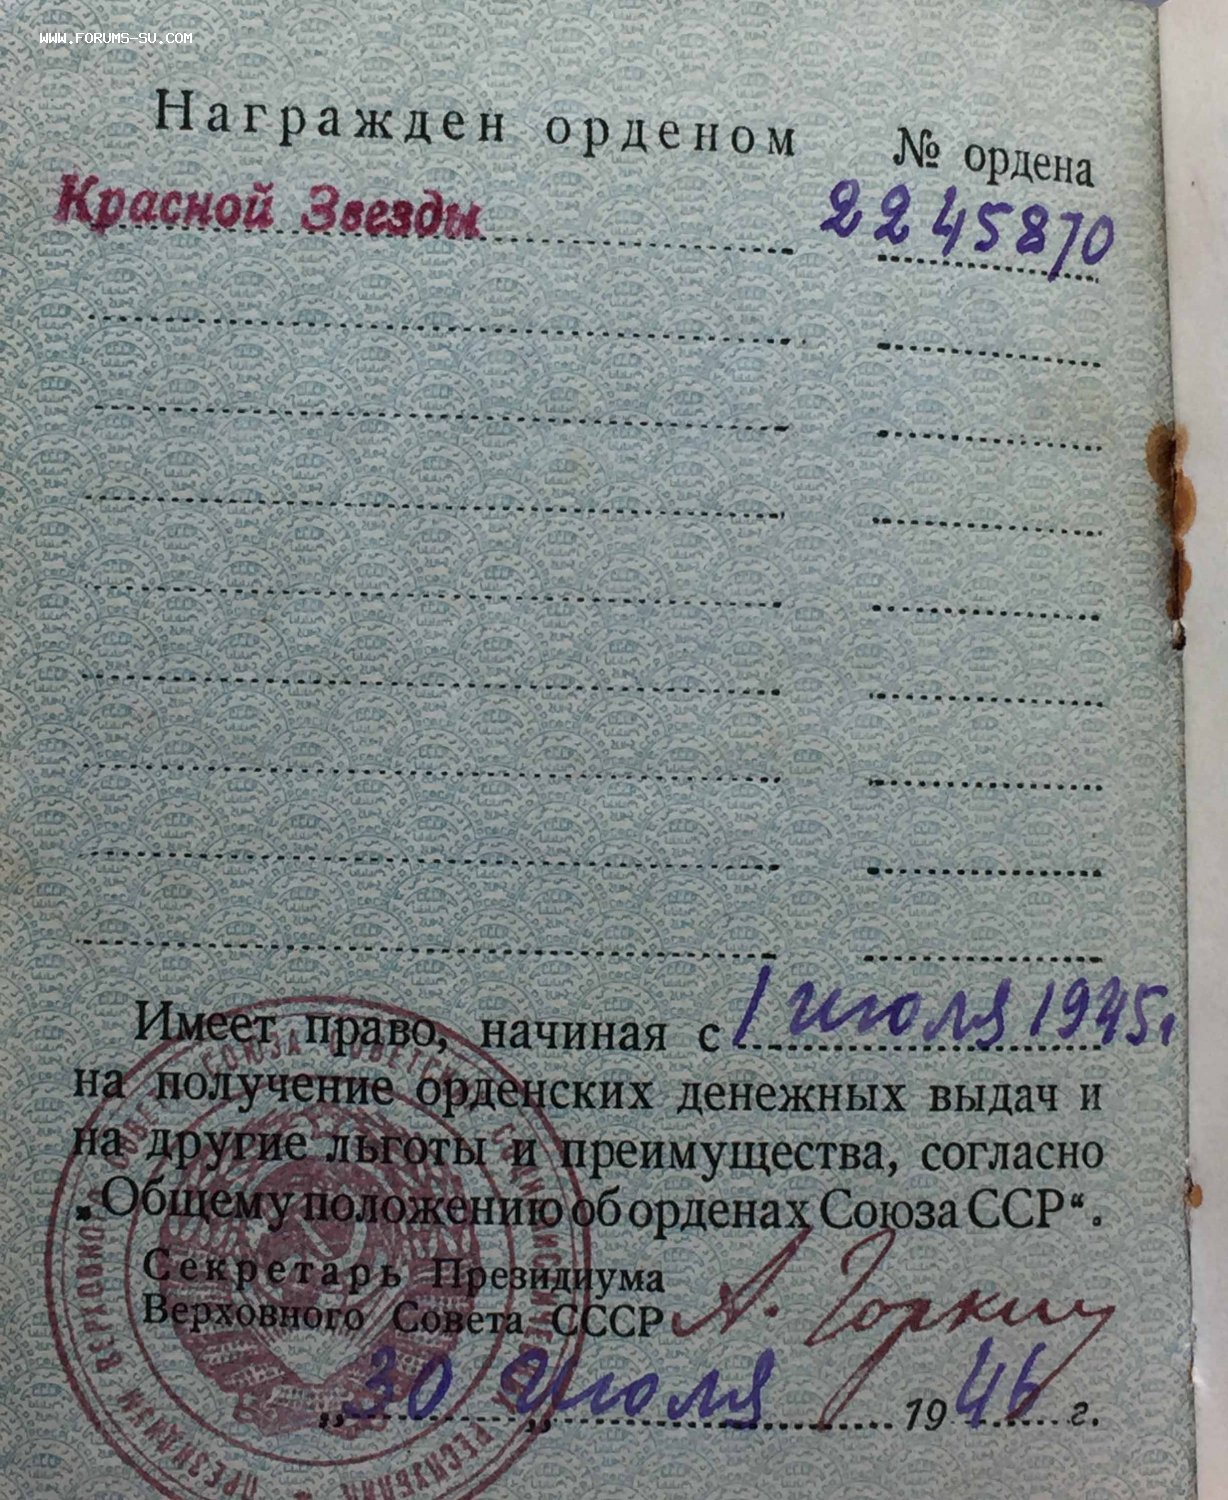 WWW.FORUMS-SU.COM
Награжден орденом № ордена
Красной Звезды 2245870
Имеет право, начиная с 1 июля 1945г
на получение орденских денежных выдач и
на другие льготы и преимущества, согласно
„Общему положению об орденах Союза ССР“.
Секретарь Президиума
Верховного Совета СССР А. Горкин
„30„ июля 1946 г.
ПРЕЗИДИУМ ВЕРХОВНОГО СОВЕТА СОЮЗА СОВЕТСКИХ